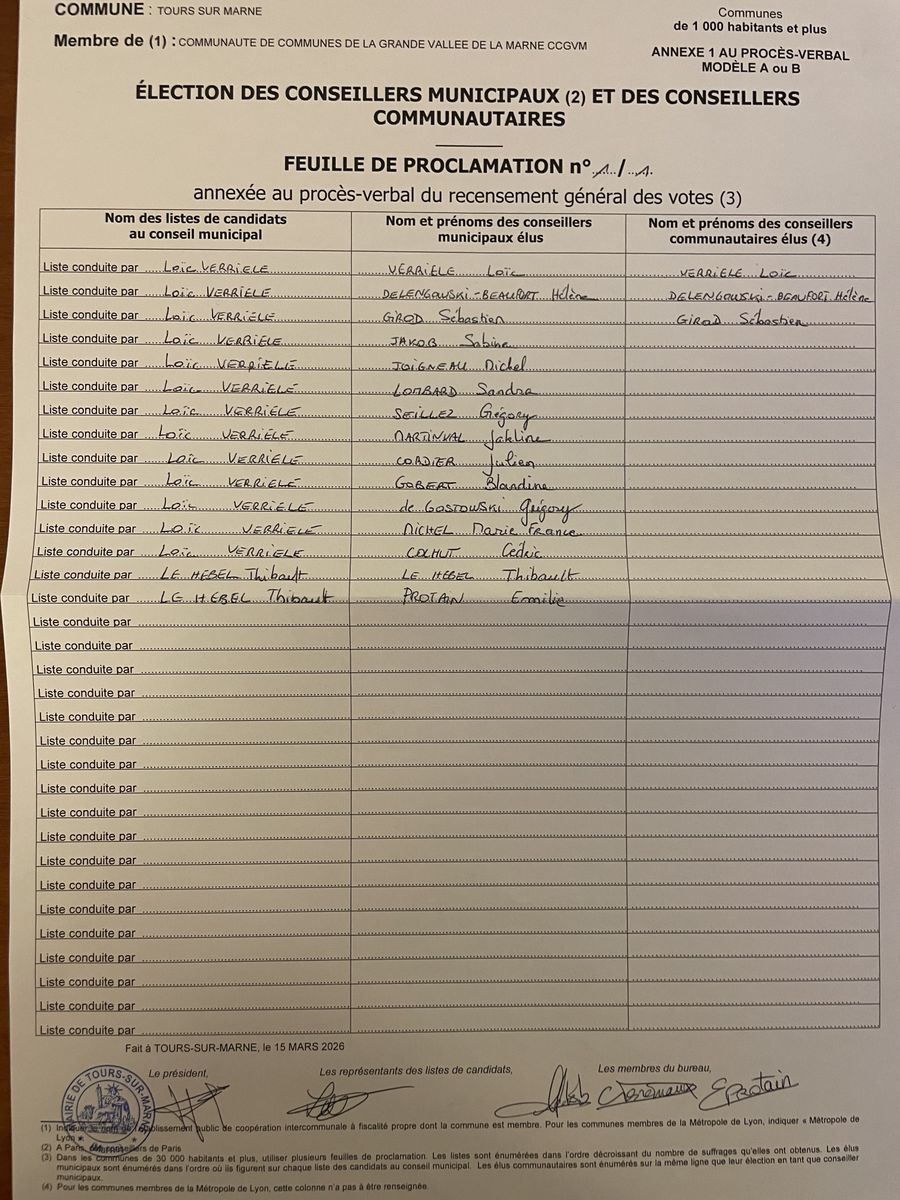 COMMUNE : TOURS SUR MARNE
Communes
de 1 000 habitants et plus
Membre de (1) : COMMUNAUTE DE COMMUNES DE LA GRANDE VALLEE DE LA MARNE CCGVM
ANNEXE 1 AU PROCÈS-VERBAL
MODÈLE A ou B
ÉLECTION DES CONSEILLERS MUNICIPAUX (2) ET DES CONSEILLERS
COMMUNAUTAIRES
FEUILLE DE PROCLAMATION n° 1 / 1
annexée au procès-verbal du recensement général des votes (3)
Nom des listes de candidats
au conseil municipal
Nom et prénoms des conseillers
municipaux élus
Nom et prénoms des conseillers
communautaires élus (4)
Liste conduite par Loïc VERRIELE VERRIELE Loïc VERRIELE Loïc
Liste conduite par Loïc VERRIELE DELENGOWSKI-BEAUFORT Hélène DELENGOWSKI-BEAUFORT Hélène
Liste conduite par Loïc VERRIELE GIROD Sébastien GIROD Sébastien
Liste conduite par Loïc VERRIELE JAKOB Sabine
Liste conduite par Loïc VERRIELE JOIGNEAU Michel
Liste conduite par Loïc VERRIELE LOMBARD Sandra
Liste conduite par Loïc VERRIELE SEILLEZ Grégory
Liste conduite par Loïc VERRIELE MARTINVAL Jakline
Liste conduite par Loïc VERRIELE CORDIER Julien
Liste conduite par Loïc VERRIELE GOBERT Blandine
Liste conduite par Loïc VERRIELE de GOSTOWSKI Grégory
Liste conduite par Loïc VERRIELE MICHEL Marie France
Liste conduite par Loïc VERRIELE COLHUT Cédric
Liste conduite par LE HEBEL Thibault LE HEBEL Thibault
Liste conduite par LE HEBEL Thibault PROTAIN Emilie
Liste conduite par
Liste conduite par
Liste conduite par
Liste conduite par
Liste conduite par
Liste conduite par
Liste conduite par
Liste conduite par
Liste conduite par
Liste conduite par
Liste conduite par
Liste conduite par
Liste conduite par
Liste conduite par
Liste conduite par
Liste conduite par
Liste conduite par
Liste conduite par
Fait à TOURS-SUR-MARNE, le 15 MARS 2026
Le président,
Les représentants des listes de candidats,
Les membres du bureau,
MAIRIE DE TOURS-SUR-MARNE
EProtain
(1) Indiquer le nom de l'établissement public de coopération intercommunale à fiscalité propre dont la commune est membre. Pour les communes membres de la Métropole de Lyon, indiquer « Métropole de
Lyon ».
(2) A Paris, conseillers de Paris
(3) Dans les communes de 30 000 habitants et plus, utiliser plusieurs feuilles de proclamation. Les listes sont énumérées dans l'ordre décroissant du nombre de suffrages qu'elles ont obtenus. Les élus
municipaux sont énumérés dans l'ordre où ils figurent sur chaque liste des candidats au conseil municipal. Les élus communautaires sont énumérés sur la même ligne que leur élection en tant que conseiller
municipaux.
(4) Pour les communes membres de la Métropole de Lyon, cette colonne n'a pas à être renseignée.